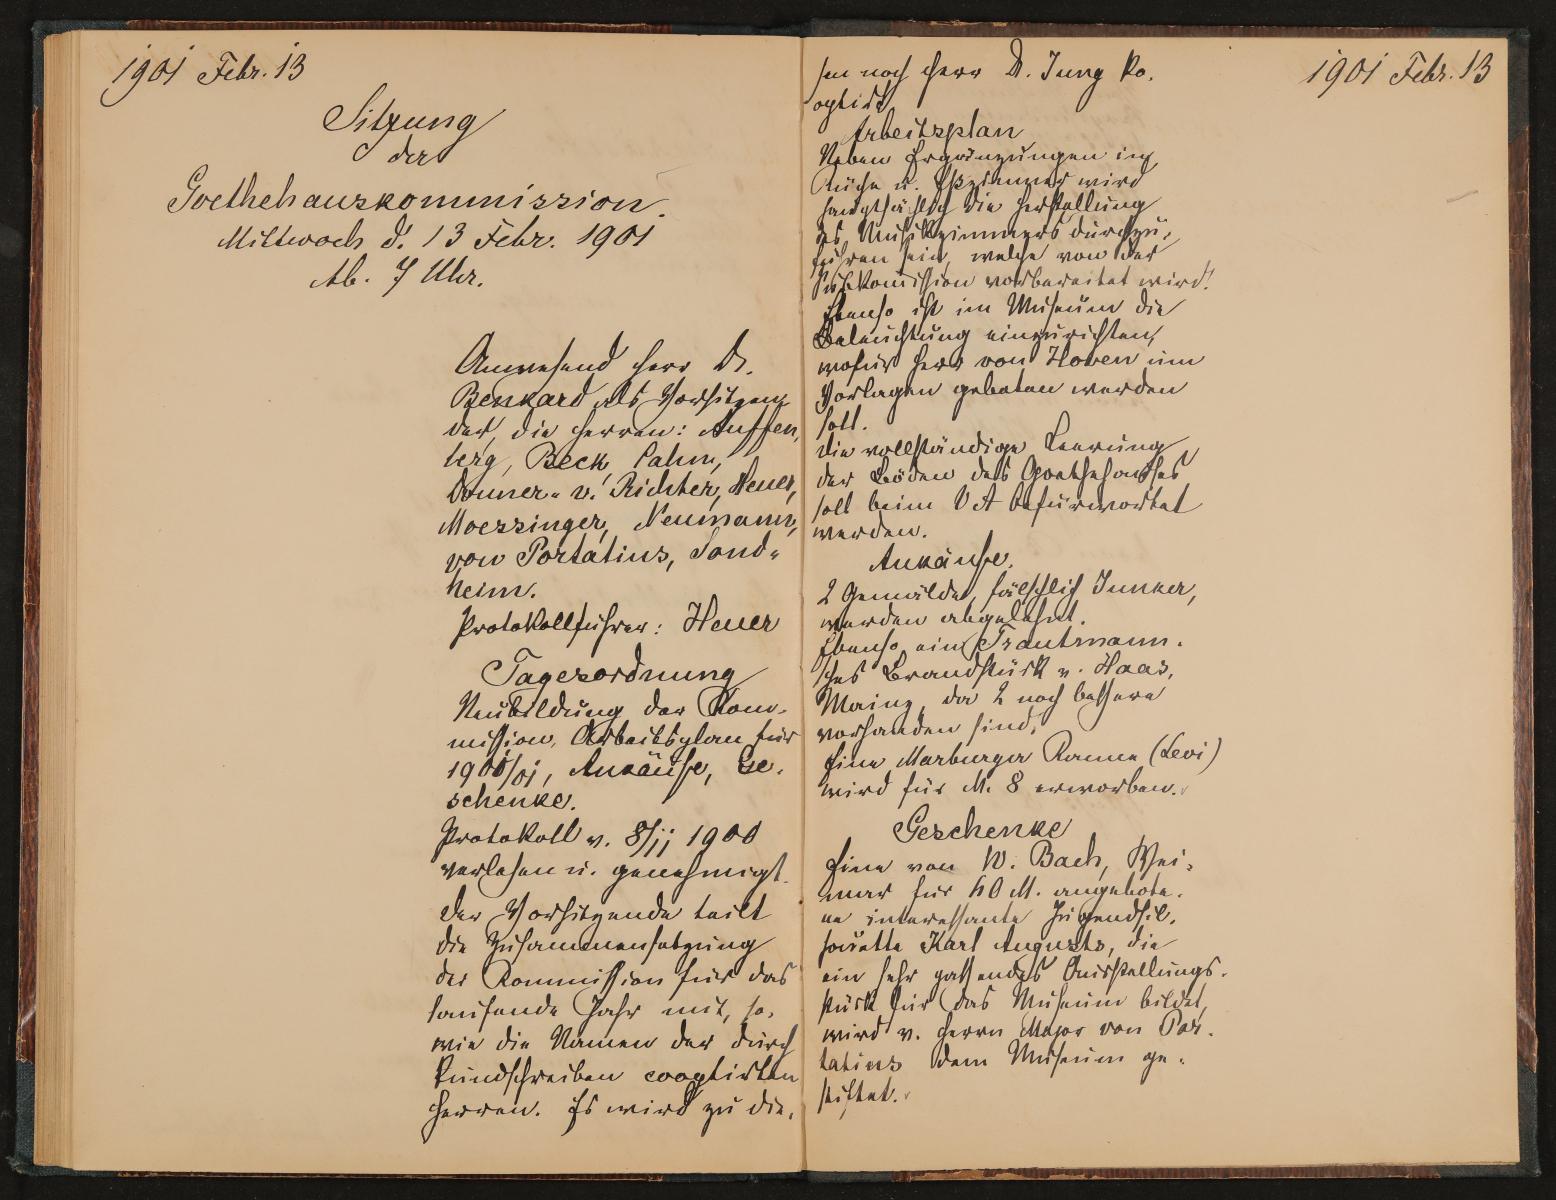 1901 Febr. 13
Sitzung
der
Goethehauskommission.
Mittwoch d. 13 Febr. 1901
Ab. 7 Uhr.
Anwesend Herr Dr.
Benkard als Vorsitzen
der, die Herren: Auffen,
berg, Beck, Cahn,
Donner- v. Richter, Heuer,
Moessinger, Neumann,
von Portatius, Sond-
heim.
Protokollführer: Heuer
Tagesordnung
Neubildung der Kom-
mission, Arbeitsplan für
1900/01, Ankäufe, Ge-
schenke.
Protokoll v. 8/11 1900
verlesen u. genehmigt.
Der Vorsitzende teilt
die Zusammensetzung
der Kommission für das
laufende Jahr mit, so-
wie die Namen der durch
Rundschreiben cooptirten
Herren. Es wird zu die-
sen noch Herr Dr. Jung ko-
optirt
Arbeitsplan
Neben Ergänzungen in
Küche u. Eßzimmer wird
hauptsächlich die Herstellung
des Musikzimmers durchzu-
führen sein, welche von der
Subkomission vorbereitet wird.
Ebenso ist im Museum die
Beleuchtung einzurichten,
wofür Herr von Hoven um
Vorlagen gebeten werden
soll.
Die vollständige Leerung
der Böden des Goethehauses
soll beim VA befürwortet
werden.
Ankäufe.
2 Gemälde, fälschlich Juncker,
werden abgelehnt.
Ebenso ein Trautmann-
sches Brandstück v. Haas,
Mainz, da 2 noch bessere
vorhanden sind,
Eine Marburger Kanne (Levi)
wird für M. 8 erworben.
Geschenke
Eine von W. Bach, Wei-
mar für 40 M. angebote-
ne interessante Jugendsil-
houette Karl Augusts, die
ein sehr passendes Ausstellungs-
stück für das Museum bildet,
wird v. Herrn Major von Por-
tatius dem Museum ge-
stiftet.
1901 Febr. 13